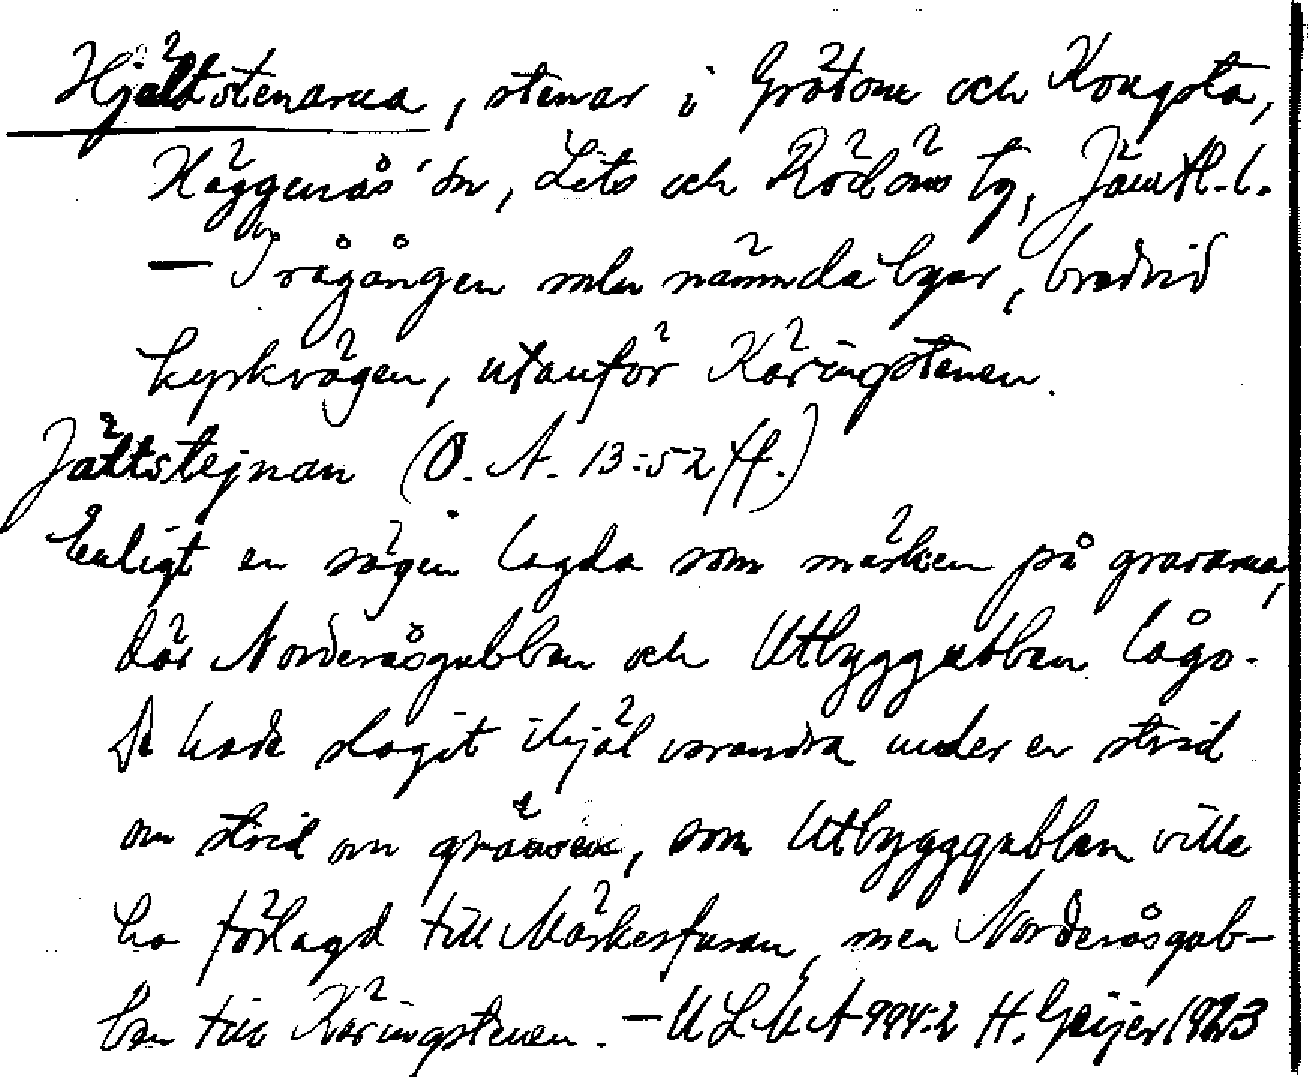 Hjältstenarna, stenar i Grötom och Kougsta,
Häggenås' sn, Lits och Rödöns tg, Jämtl. l.
— I rågången mln nämnda byar, bredvid
kyrkvägen, utanför Käringstenen.
Jältstejnan (O. A. 13:52 ff.)
Enligt en sägen lagda som märken på gravarna,
där Norderåsgubben och Utbyggubben lågo.
De hade slagit ihjäl varandra under en strid
om strid om gränsen, som Utbygggubben ville
ha förlagd till Märkesfuran, men Norderåsgub-
ben till Käringstenen. — ULMA 994:2 H. Geijer 1923